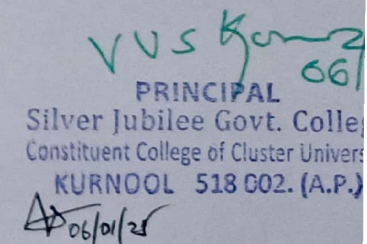 VVS Kum
06/
PRINCIPAL
Silver Jubilee Govt. Colle
Constituent College of Cluster Univers
KURNOOL 518 002. (A.P.)
06/01/25